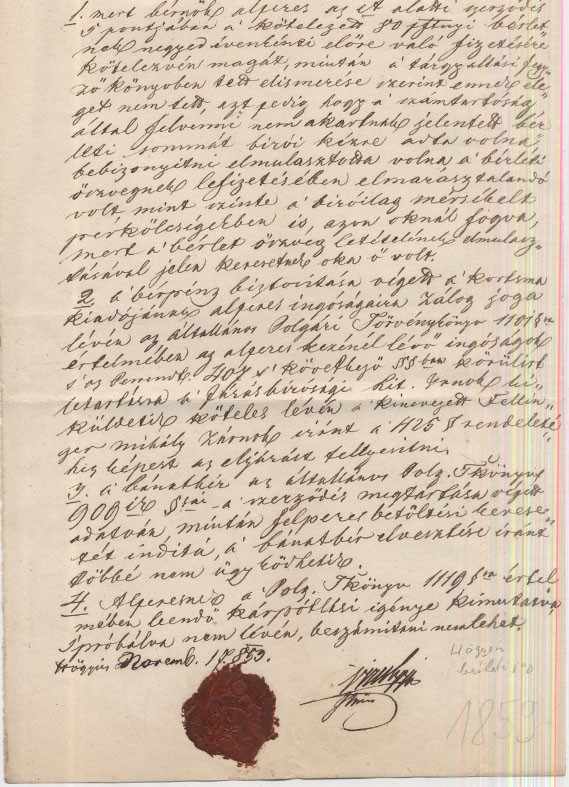 1. mert bérnök alperes az et alatti szerződés
5 pontjában a kötelezett 80 pftnyi bérlet
nek negyed évenkénti előre való fizetésére
kötelezvén magát, miután a tárgyalási jegy
zőkönyvben tett elismerése szerint ennek ele
get nem tett, azt pedig hogy a számtartóság
által felvenni nem akartnak jelentett bér
leti sommát bírói kézre adta volna
bebizonyitni elmulasztotta volna a bérleti
öszvegnek lefizetésében elmarasztalandó
volt, mint szinte a' biróilag mérsékelt
perköltségekben is, azon oknál fogva,
mert a' bérlet öszveg letételének elmulasz
tásával jelen keresetnek oka ő volt.
2. a bérpénz biztositása végett a kortsma
kiadójának alperes ingóságaira zálog joga
lévén az általlános Polgári Törvénykönyv 1101 §sa
értelmében az alperes kezénél lévő ingóságok
s' az Perrend. 404 s' következő §§ban körülirt
letartássa a Járásbirósági hit. Irnok ki„
küldetik köteles lévén a kinevezett Fellin„
ger Mihály Irnok iránt a 425 § rendeleté„
hez képest az eljárást tellyesitni.
3. a bánatbér az általlános Polg. Tkönyv
909ik §sai a szerződés megtartása végett
adatván, miután felperes bétöltési kerese
tét inditá, a' bánatbér elvesztése iránt
többé nem ügyködhetik.
4. Alperesnek a Polg. Tkönyv 1119 §sa értel
mében leendő kárpóltlási igénye kimutatva
s próbálva nem lévén, beszámitani nem lehet.
Högyész Novemb. 17. 859.
Högyészi
bérlet
1859